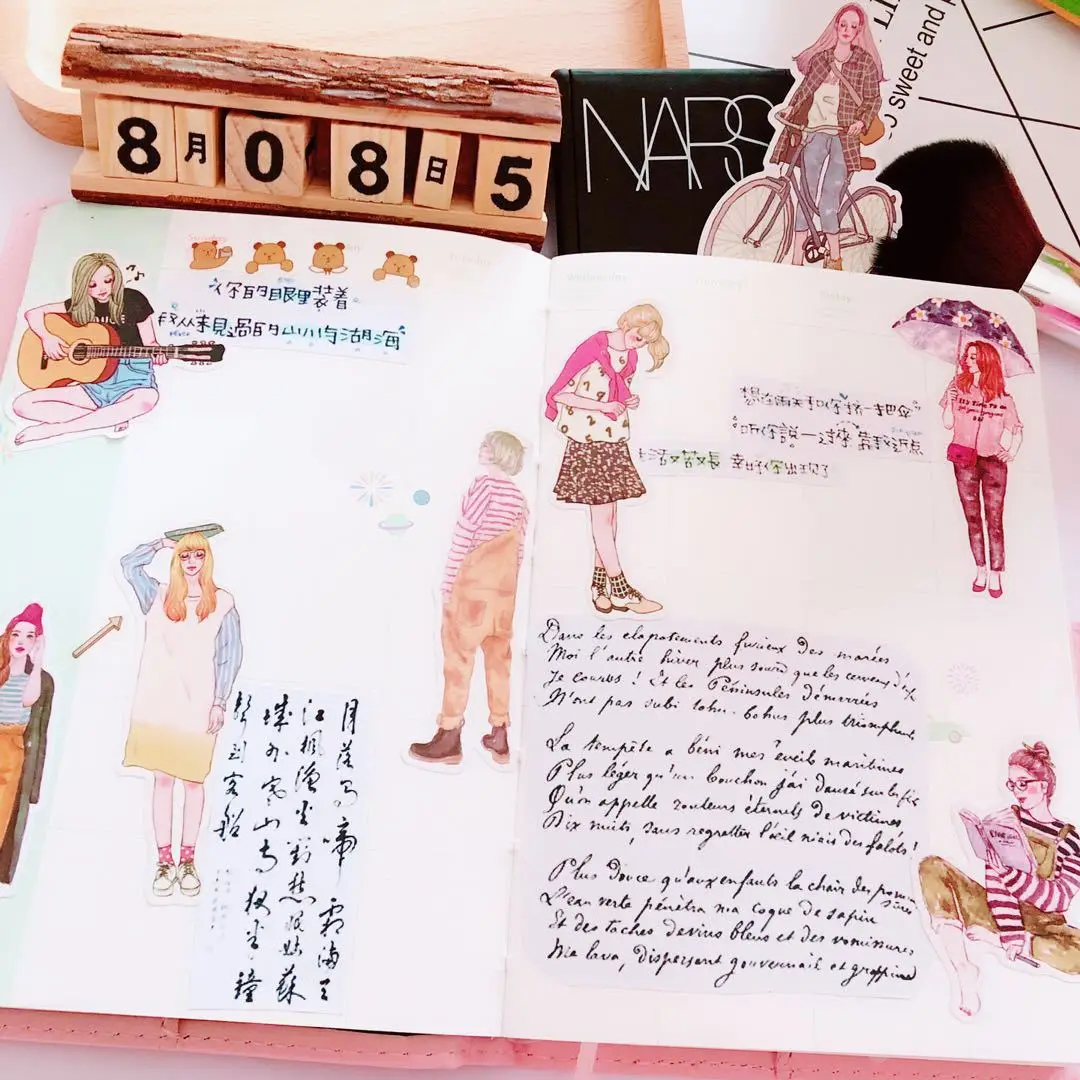 8月08日5
NARS
sweet and
你的眼里装着
我从未見過的山川与湖海
想在雨天和你挤一把伞
听你説
靠我近点
生活又苦又長 幸好你出現了
月落烏啼霜滿天
江楓漁火對愁眠姑蘇
城外寒山寺夜半鐘
聲到客船
Dans les clapotements furieux des marées
Moi l'autre hiver plus sourd que les cerveaux
Je courus ! Et les Péninsules démarrées
N'ont pas subi tohu-bohus plus triomphants
La tempête a béni mes éveils maritimes
Plus léger qu'un bouchon j'ai dansé sur les flots
Qu'on appelle rouleurs éternels de victimes,
Dix nuits, sans regretter l'œil niais des falots !
Plus douce qu'aux enfants la chair des pommes sûres
L'eau verte pénétra ma coque de sapin
Et des taches de vins bleus et des vomissures
Me lava, dispersant gouvernail et grappin